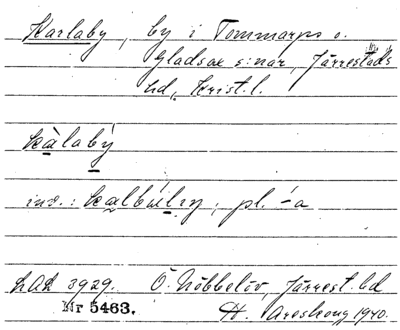 Karlaby, by i Tommarps o.
Gladsax s:nar, Järrestads
hd, Krist. l.
kàlabý
inv.: kalbúlɪŋ, pl. -́a
LAL 3929. Ö. Nöbbelöv, Järrest. hd
Nr 5463. H. Areskoug 1940.